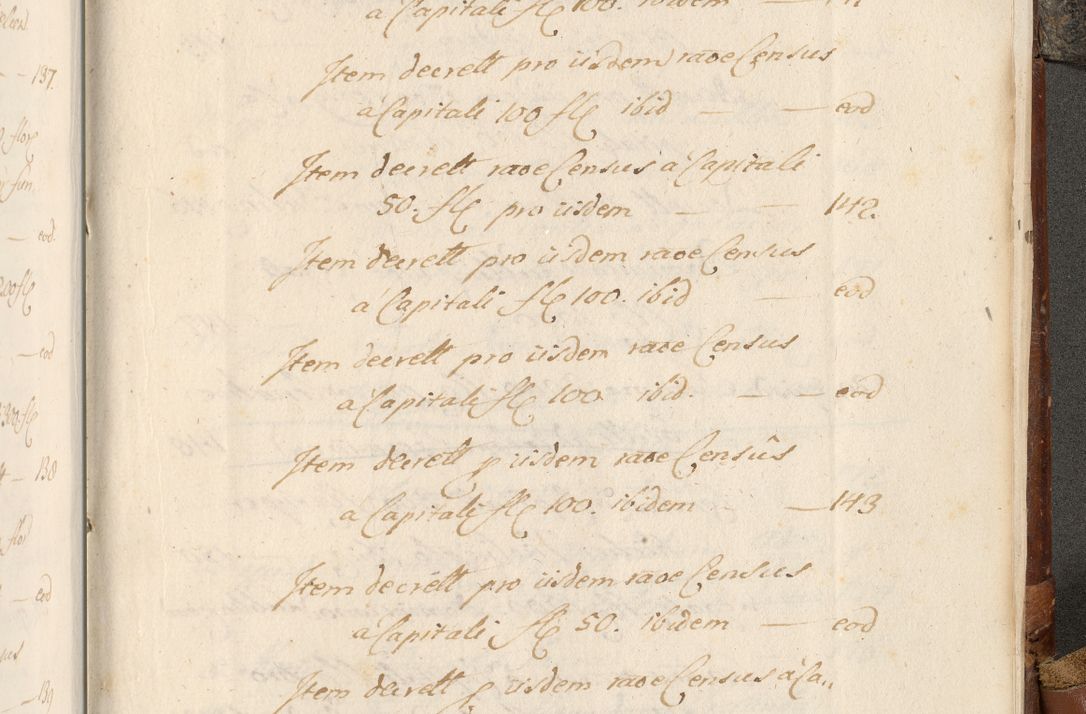 a Capitali fl 100. ibidem — 141
Item decrett pro iisdem raoe Census
a Capitali 100 fl ibid — — eod
Item decrett raoe Census a Capitali
50. fl pro iisdem — — 142.
Item decrett pro iisdem raoe Census
a Capitali fl 100. ibid — eod
Item decrett pro iisdem raoe Census
a Capitali fl 100 ibid. — — eod
Item decrett p iisdem raoe Censûs
a Capitali fl 100. ibidem — 143
Item decrett pro iisdem raoe Census
a Capitali fl 50. ibidem — eod
Item decrett p iisdem raoe Census a Ca„
— 137.
flor
— eod.
200 fl
— eod
300. fl
— 138
— eod
— 139